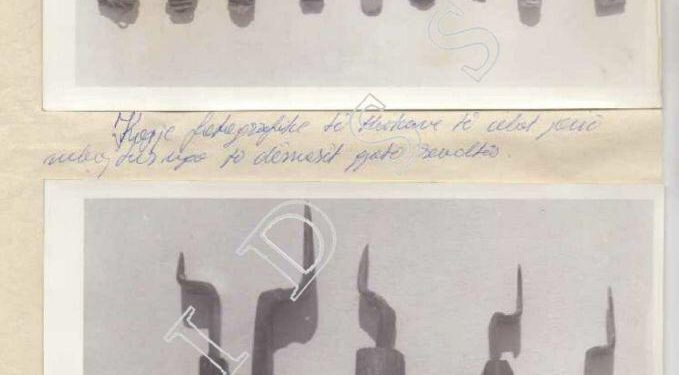 Kopje fotografike të thikave të cilat janë
mbajtur apo të dëmosit gjatë revoltës.
A I D S S